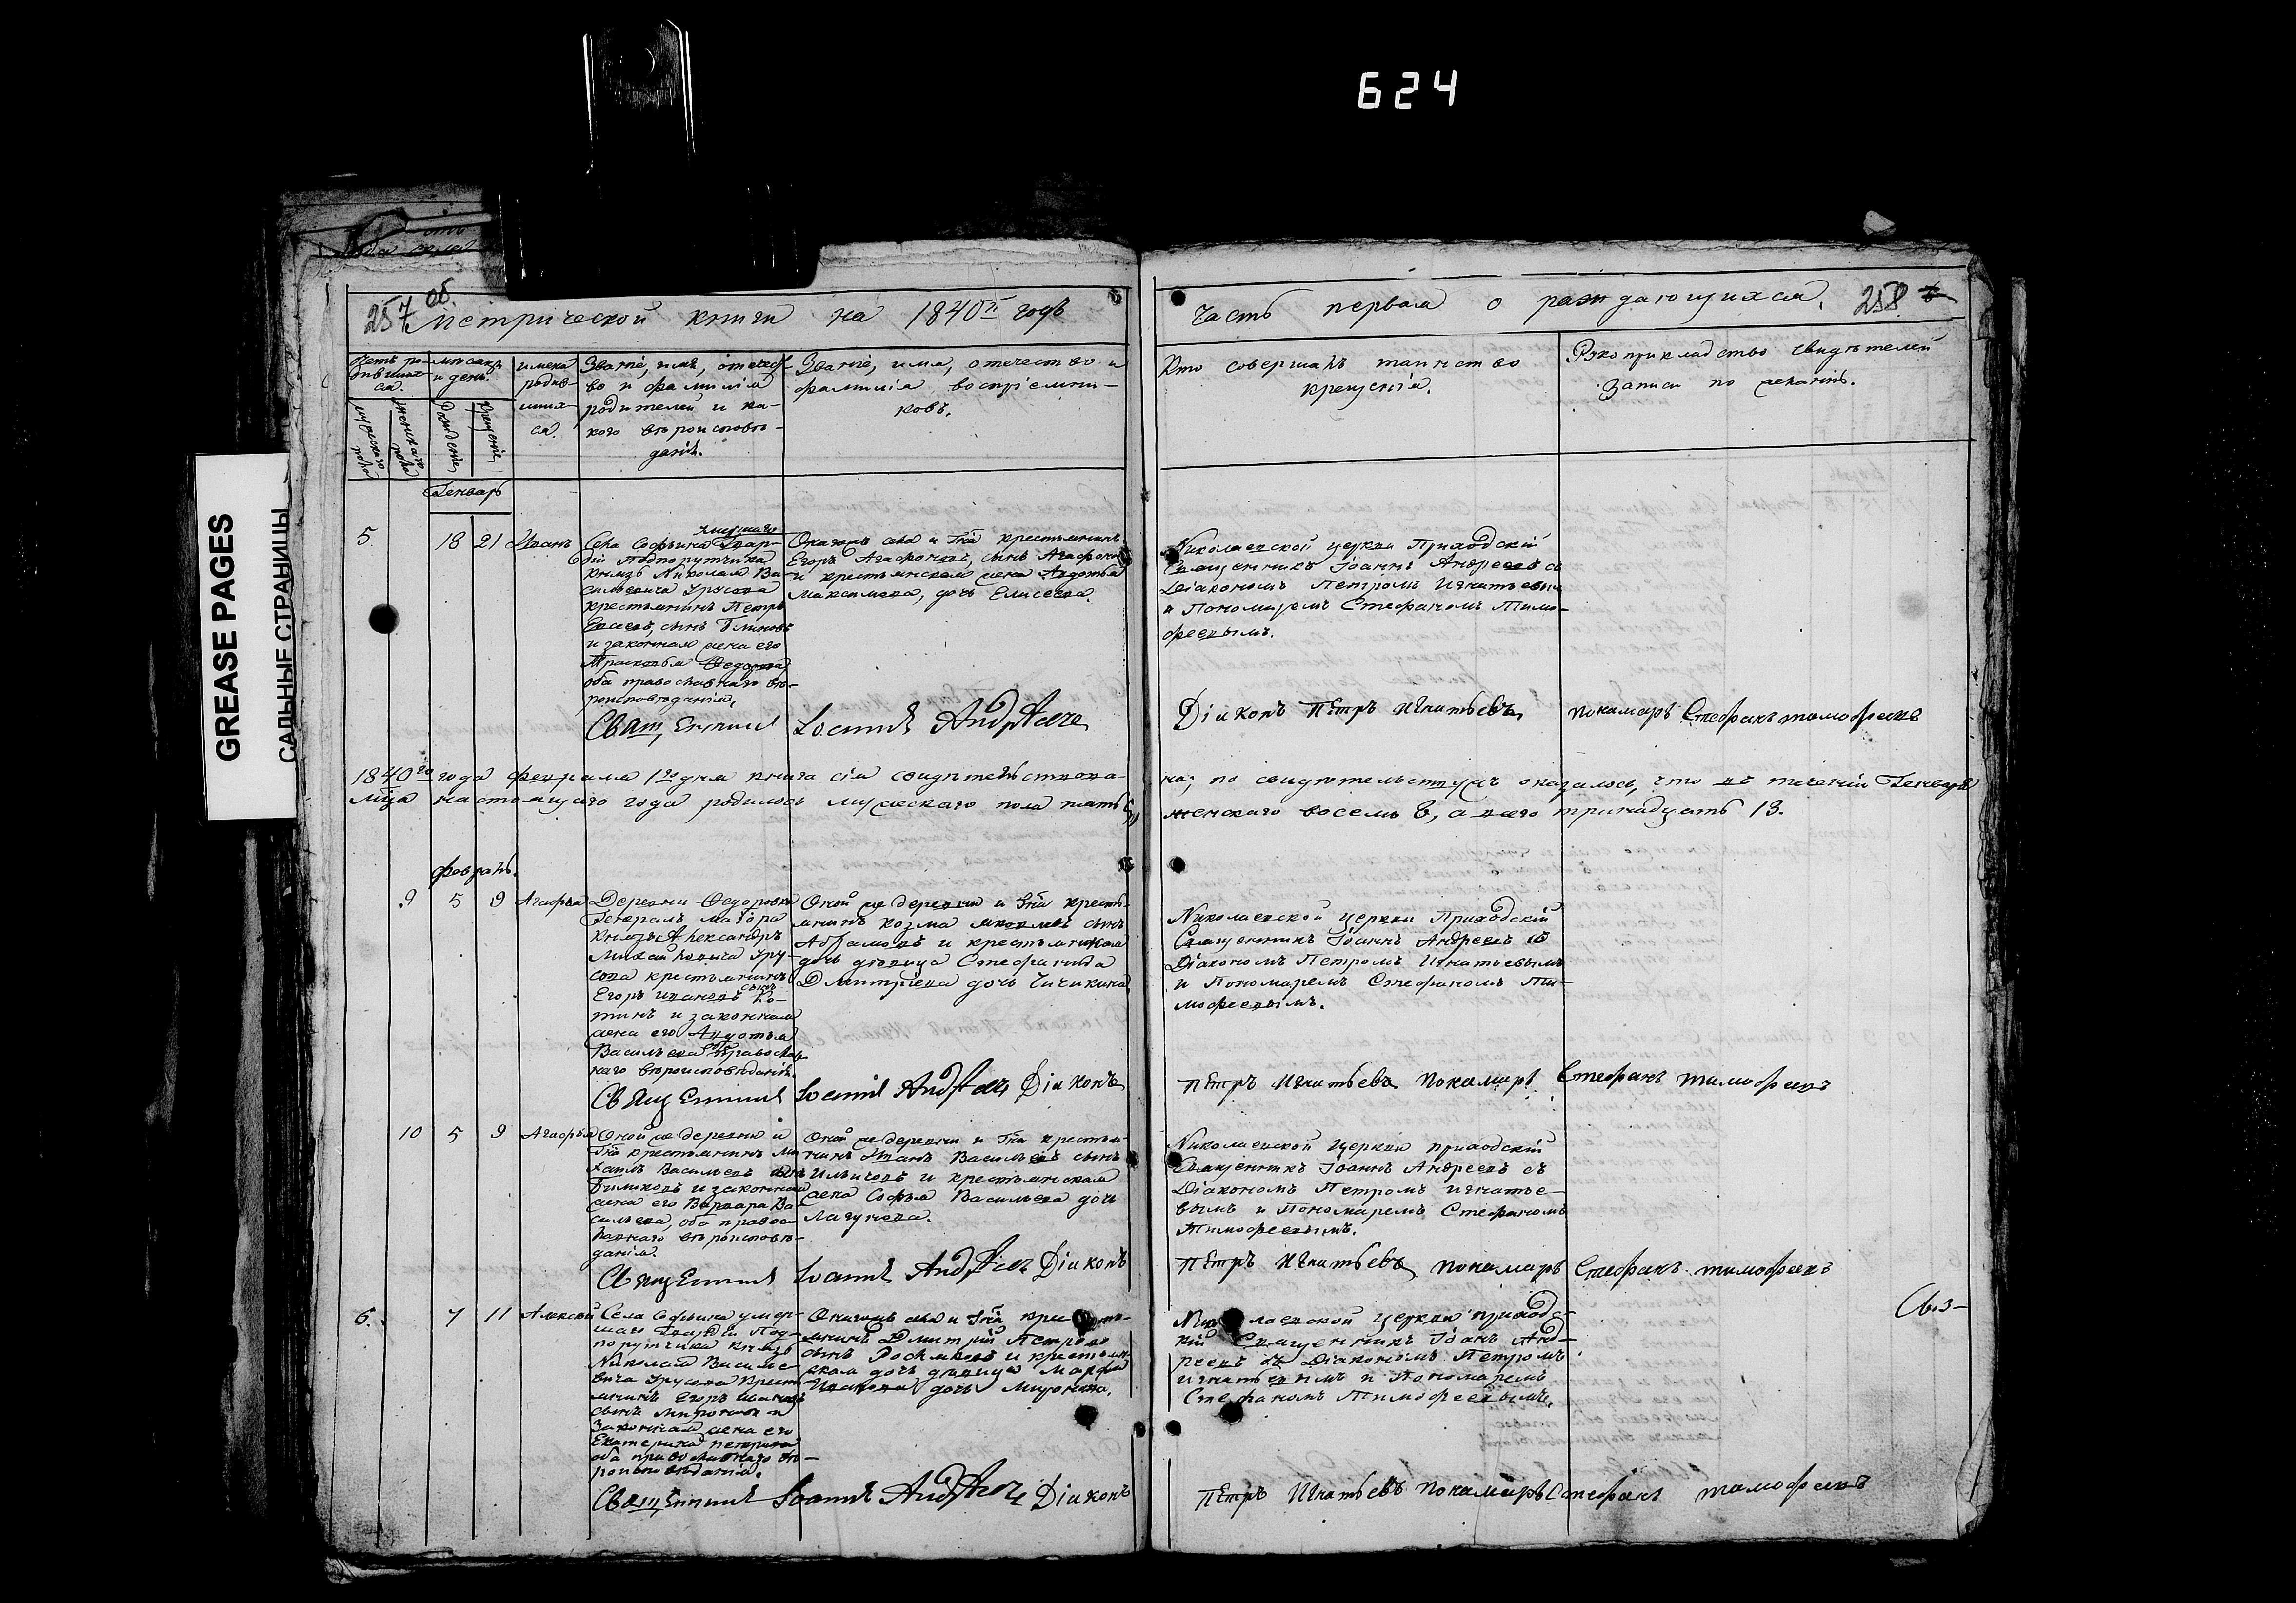 624
GREASE PAGES
САЛЬНЫЕ СТРАНИЦЫ
257 об.
Метрической книги на 1840й годъ
Часть первая о раждающихся.
258
Счетъ ро-
дивших-
ся.
Мѣсяцъ
и день.
Имена
родив-
ших-
ся.
Званіе, имя, отечест-
во и фамилія
родителей и ка-
кого вѣроисповѣ-
данія.
Званіе, има, отечество и
фамиліа воспріемни-
ковъ.
Кто совершалъ таинство
крещенія.
Рукоприкладство свидѣтелей
записи по желанію.
мужескаго
пола
женскаго
пола
Рожденіе
Крещеніе
Генварь
5
18
21
Иванъ
умершаго
Села Софьина Гвар-
діи Подпорутчика
Князь Николая Ва-
сильевича Урусова
крестьянинъ Петръ
сынъ Блиновъ
и законная жена его
Прасковья Федорова
оба православнаго вѣ-
роисповѣданія,
Онагожъ села и Гна крестьянинъ
Егоръ Агафоновъ, сынъ Агафонов
и крестьянская жена Авдотья
Максимова, дочь Елисеева.
Николаевской церкви Приходскій
Священникъ Іоаннъ Андреевъ съ
Діакономъ Петромъ Игнатьевым
и Пономаремъ Стефаномъ Тимо-
феевымъ.
Священникъ Іоаннъ Андреевъ
Діаконъ Петръ Игнатьевъ
пономарь Стефанъ тимофеевъ
1840го года февраля 1го дня книга сія свидѣтельствова-
на; по свидѣтельству оказалось, что въ теченіи Генваря
мца настоящаго года родилось мужескаго пола пять 5,
женскаго восемь 8, а всего тринадцать 13.
февраль.
9
5
9
Агафья
Деревни Федоровки
Генералъ маіора
Князь Александръ
Михайловича Уру-
сова крестьянинъ
Егоръ Ивановъ сынъ Ко-
тинъ и законная
жена его Авдотья
Васильева оба православ-
наго вѣроисповѣданія.
Оной же деревни и Гна кресть-
янинъ Козма Яковлевъ сынъ
Абрамовъ и крестьянская
дочь дѣвица Стефанида
Дмитріева дочь Чичикина.
Николаевской церкви Приходскій
Священникъ Іоаннъ Андреевъ съ
Діакономъ Петромъ Игнатьевымъ
и Пономаремъ Стефаномъ Ти-
мофеевымъ.
Священникъ Іоаннъ Андреевъ Діаконъ
Петръ Игнатьевъ пономарь Стефанъ тимофеевъ
10
5
9
Агафья
Оной же деревни и
Гна крестьянинъ Ми-
хаилъ Васильевъ сынъ
Биликовъ и законная
жена его Варвара Ва-
сильева, оба правос-
лавнаго вѣроисповѣ-
данія.
Оной же деревни и Гна крестья-
нинъ Иванъ Васильевъ сынъ
Ильичовъ и крестьянская
жена Софья Васильева дочь
Лагунова.
Николаевской Церкви приходскій
Священникъ Іоаннъ Андреевъ съ
Діакономъ Петромъ Игнатье-
вымъ и Пономаремъ Стефаномъ
Тимофеевымъ.
Священникъ Іоаннъ Андреевъ Діаконъ
Петръ Игнатьевъ пономарь Стефанъ тимофеевъ
6.
7
11
Алексѣй
Села Софьина умер-
шаго Гвардіи Под-
порутчика Князь
Николая Василье-
вича Урусова крест
янинъ Егоръ Ивановъ
сынъ Миронов и
Законная жена его
Екатерина петрова
оба православнаго вѣ-
роисповѣданія.
Онагожъ села и Гна
янинъ Дмитрій Петровъ
сынъ и крестьян-
ская дочь дѣвица Марфа
Иванова дочь Миронова.
Николаевской церкви приходс-
кій Священникъ Іоанъ Анд-
реевъ съ Діакономъ Петромъ
Игнатьевымъ и Пономаремъ
Стефаномъ Тимофеевымъ.
Священникъ Іоаннъ Андреевъ Діаконъ
Петръ Игнатьевъ пономарь Стефанъ тимофеевъ